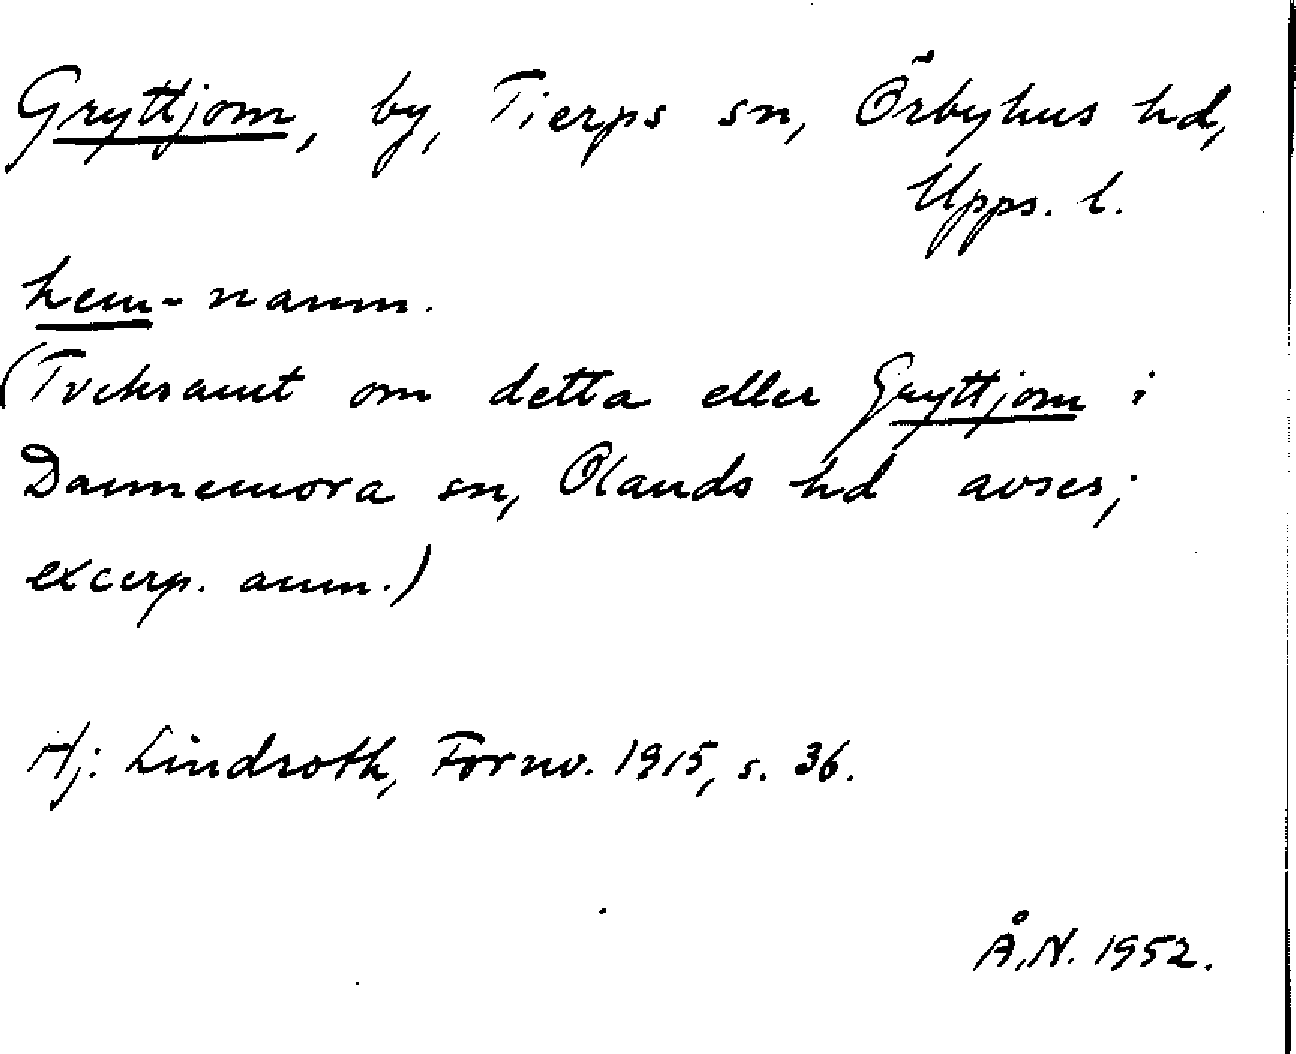 Gryttjom, by, Tierps sn, Örbyhus hd,
Upps. l.
hem-namn.
(Tveksamt om detta eller Gryttjom i
Dannemora sn, Olands hd avses;
excerp. anm.)
Hj. Lindroth, Fornv. 1915, s. 36.
Å.N. 1952.